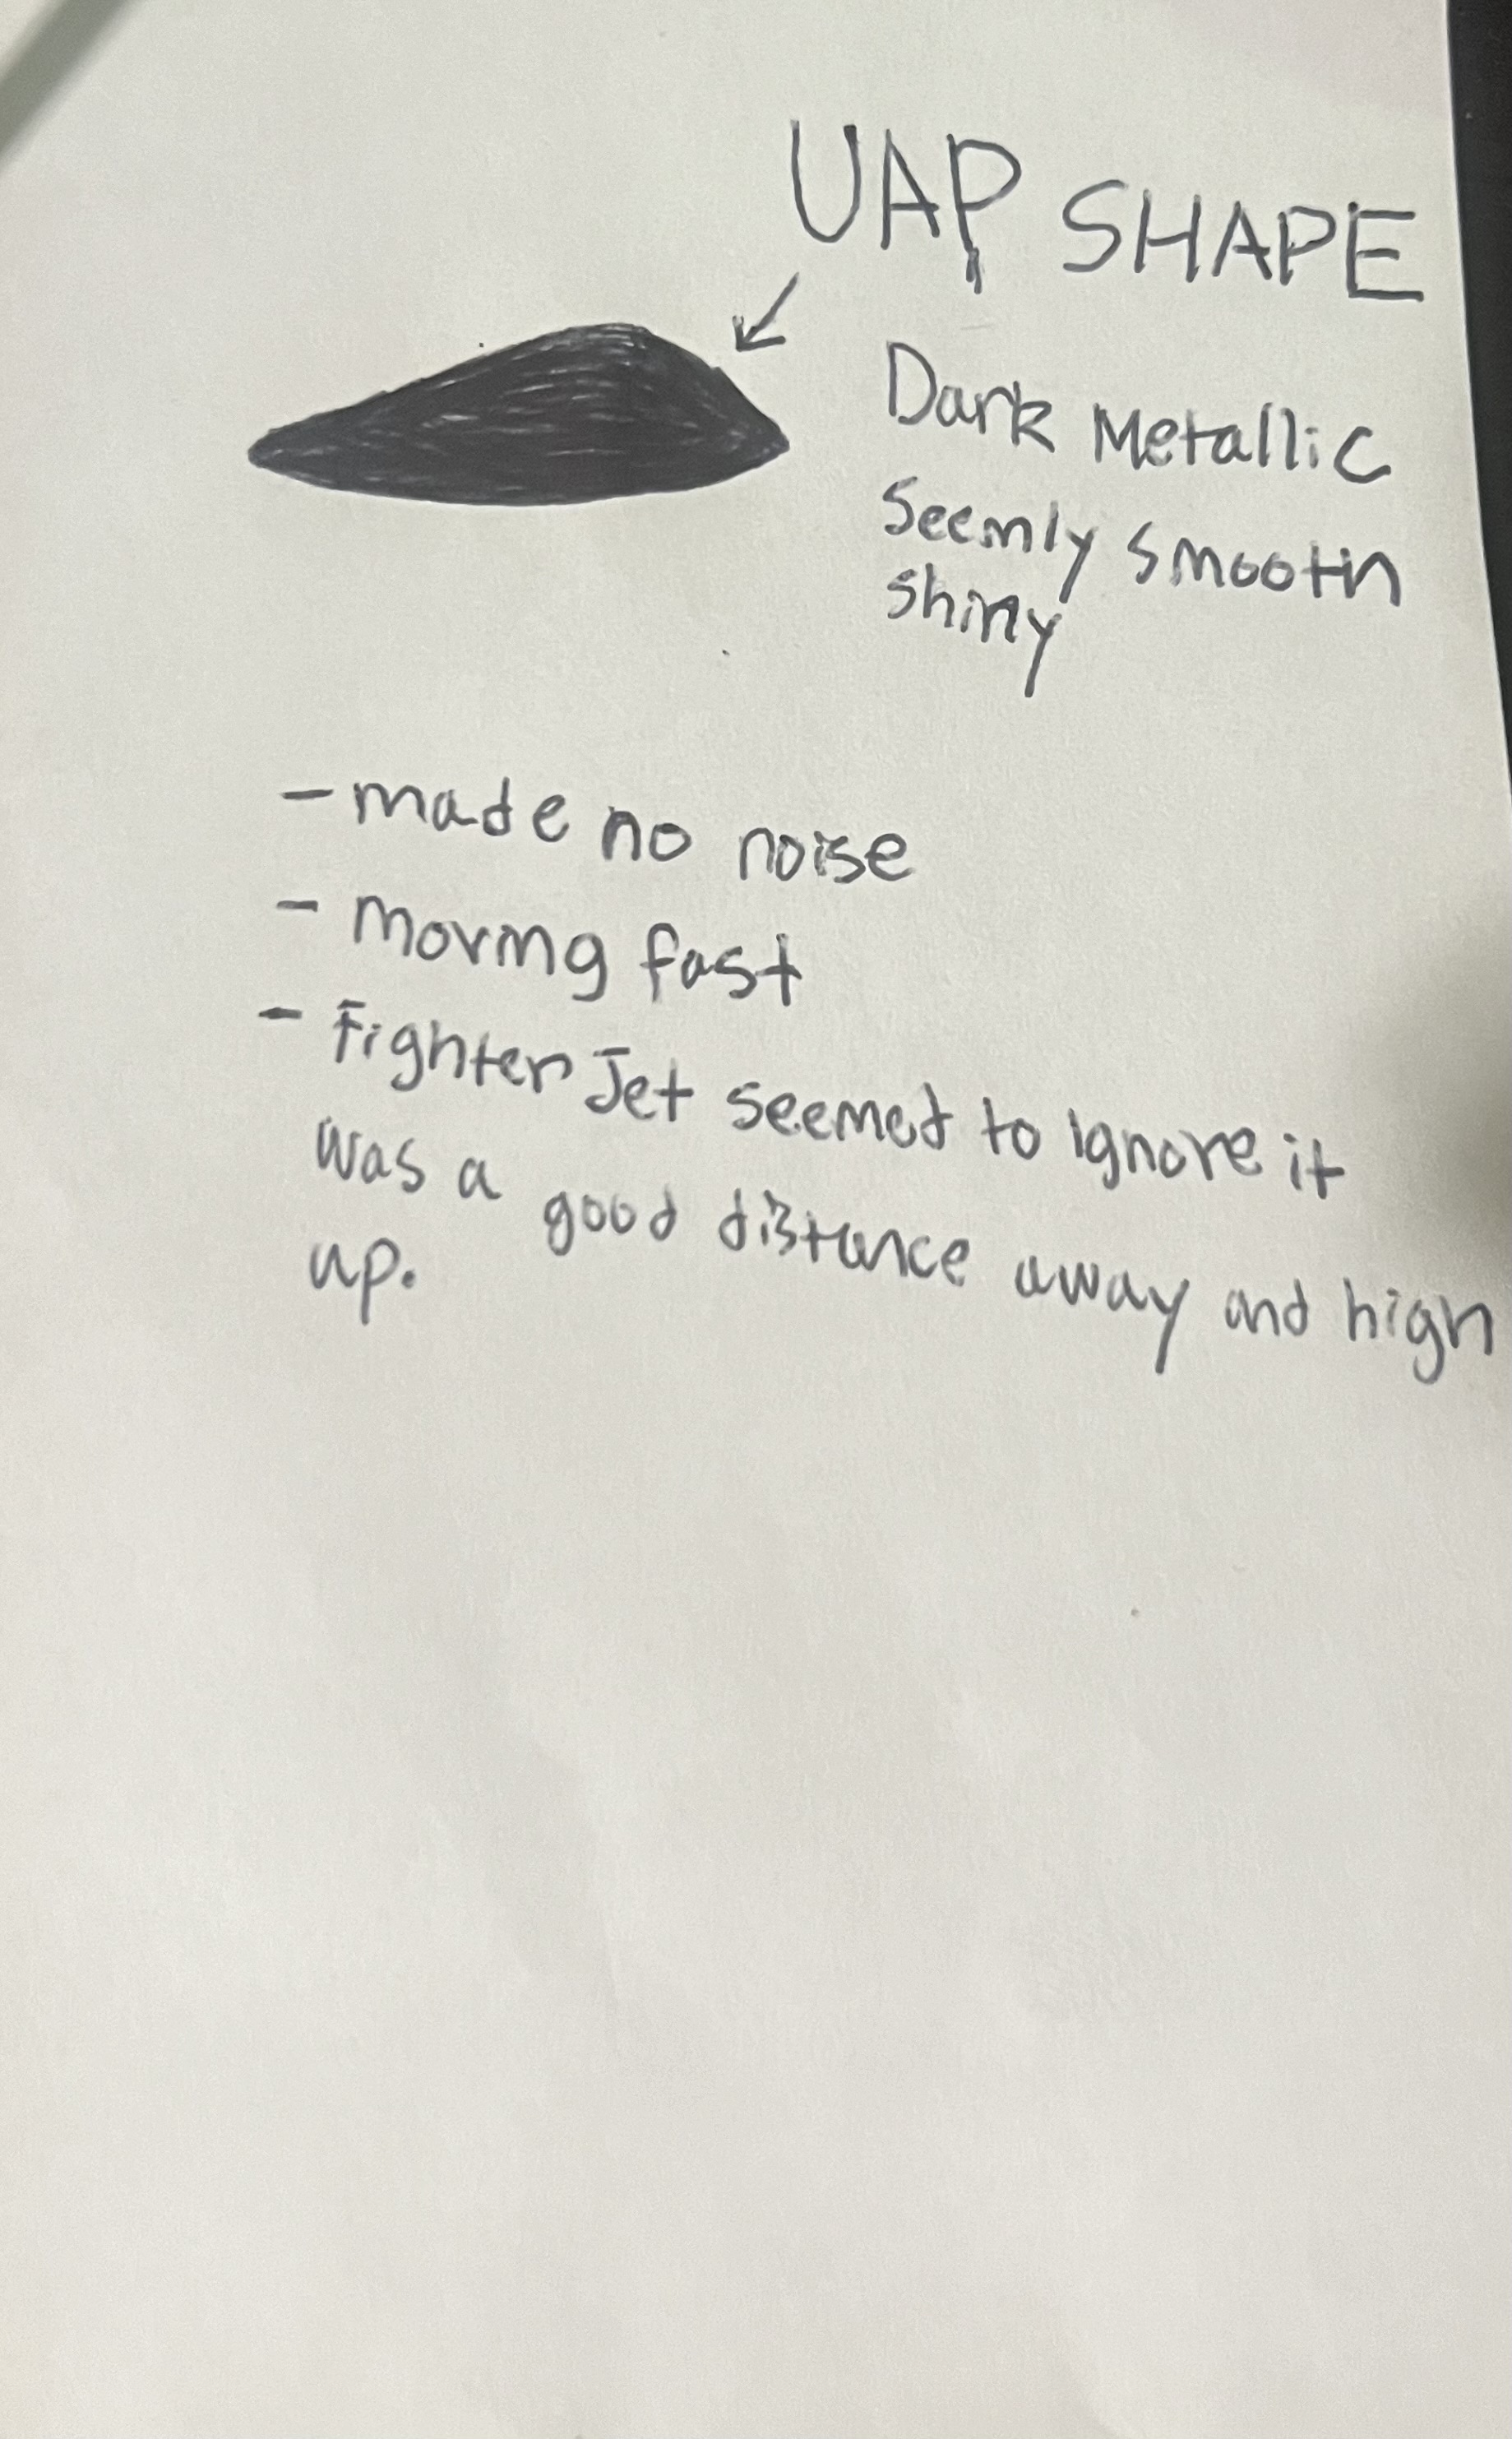 UAP SHAPE
Dark Metallic
Seemly smooth
shiny
- made no noise
- Moving fast
- Fighter Jet seemed to ignore it
was a good distance away and high
up.